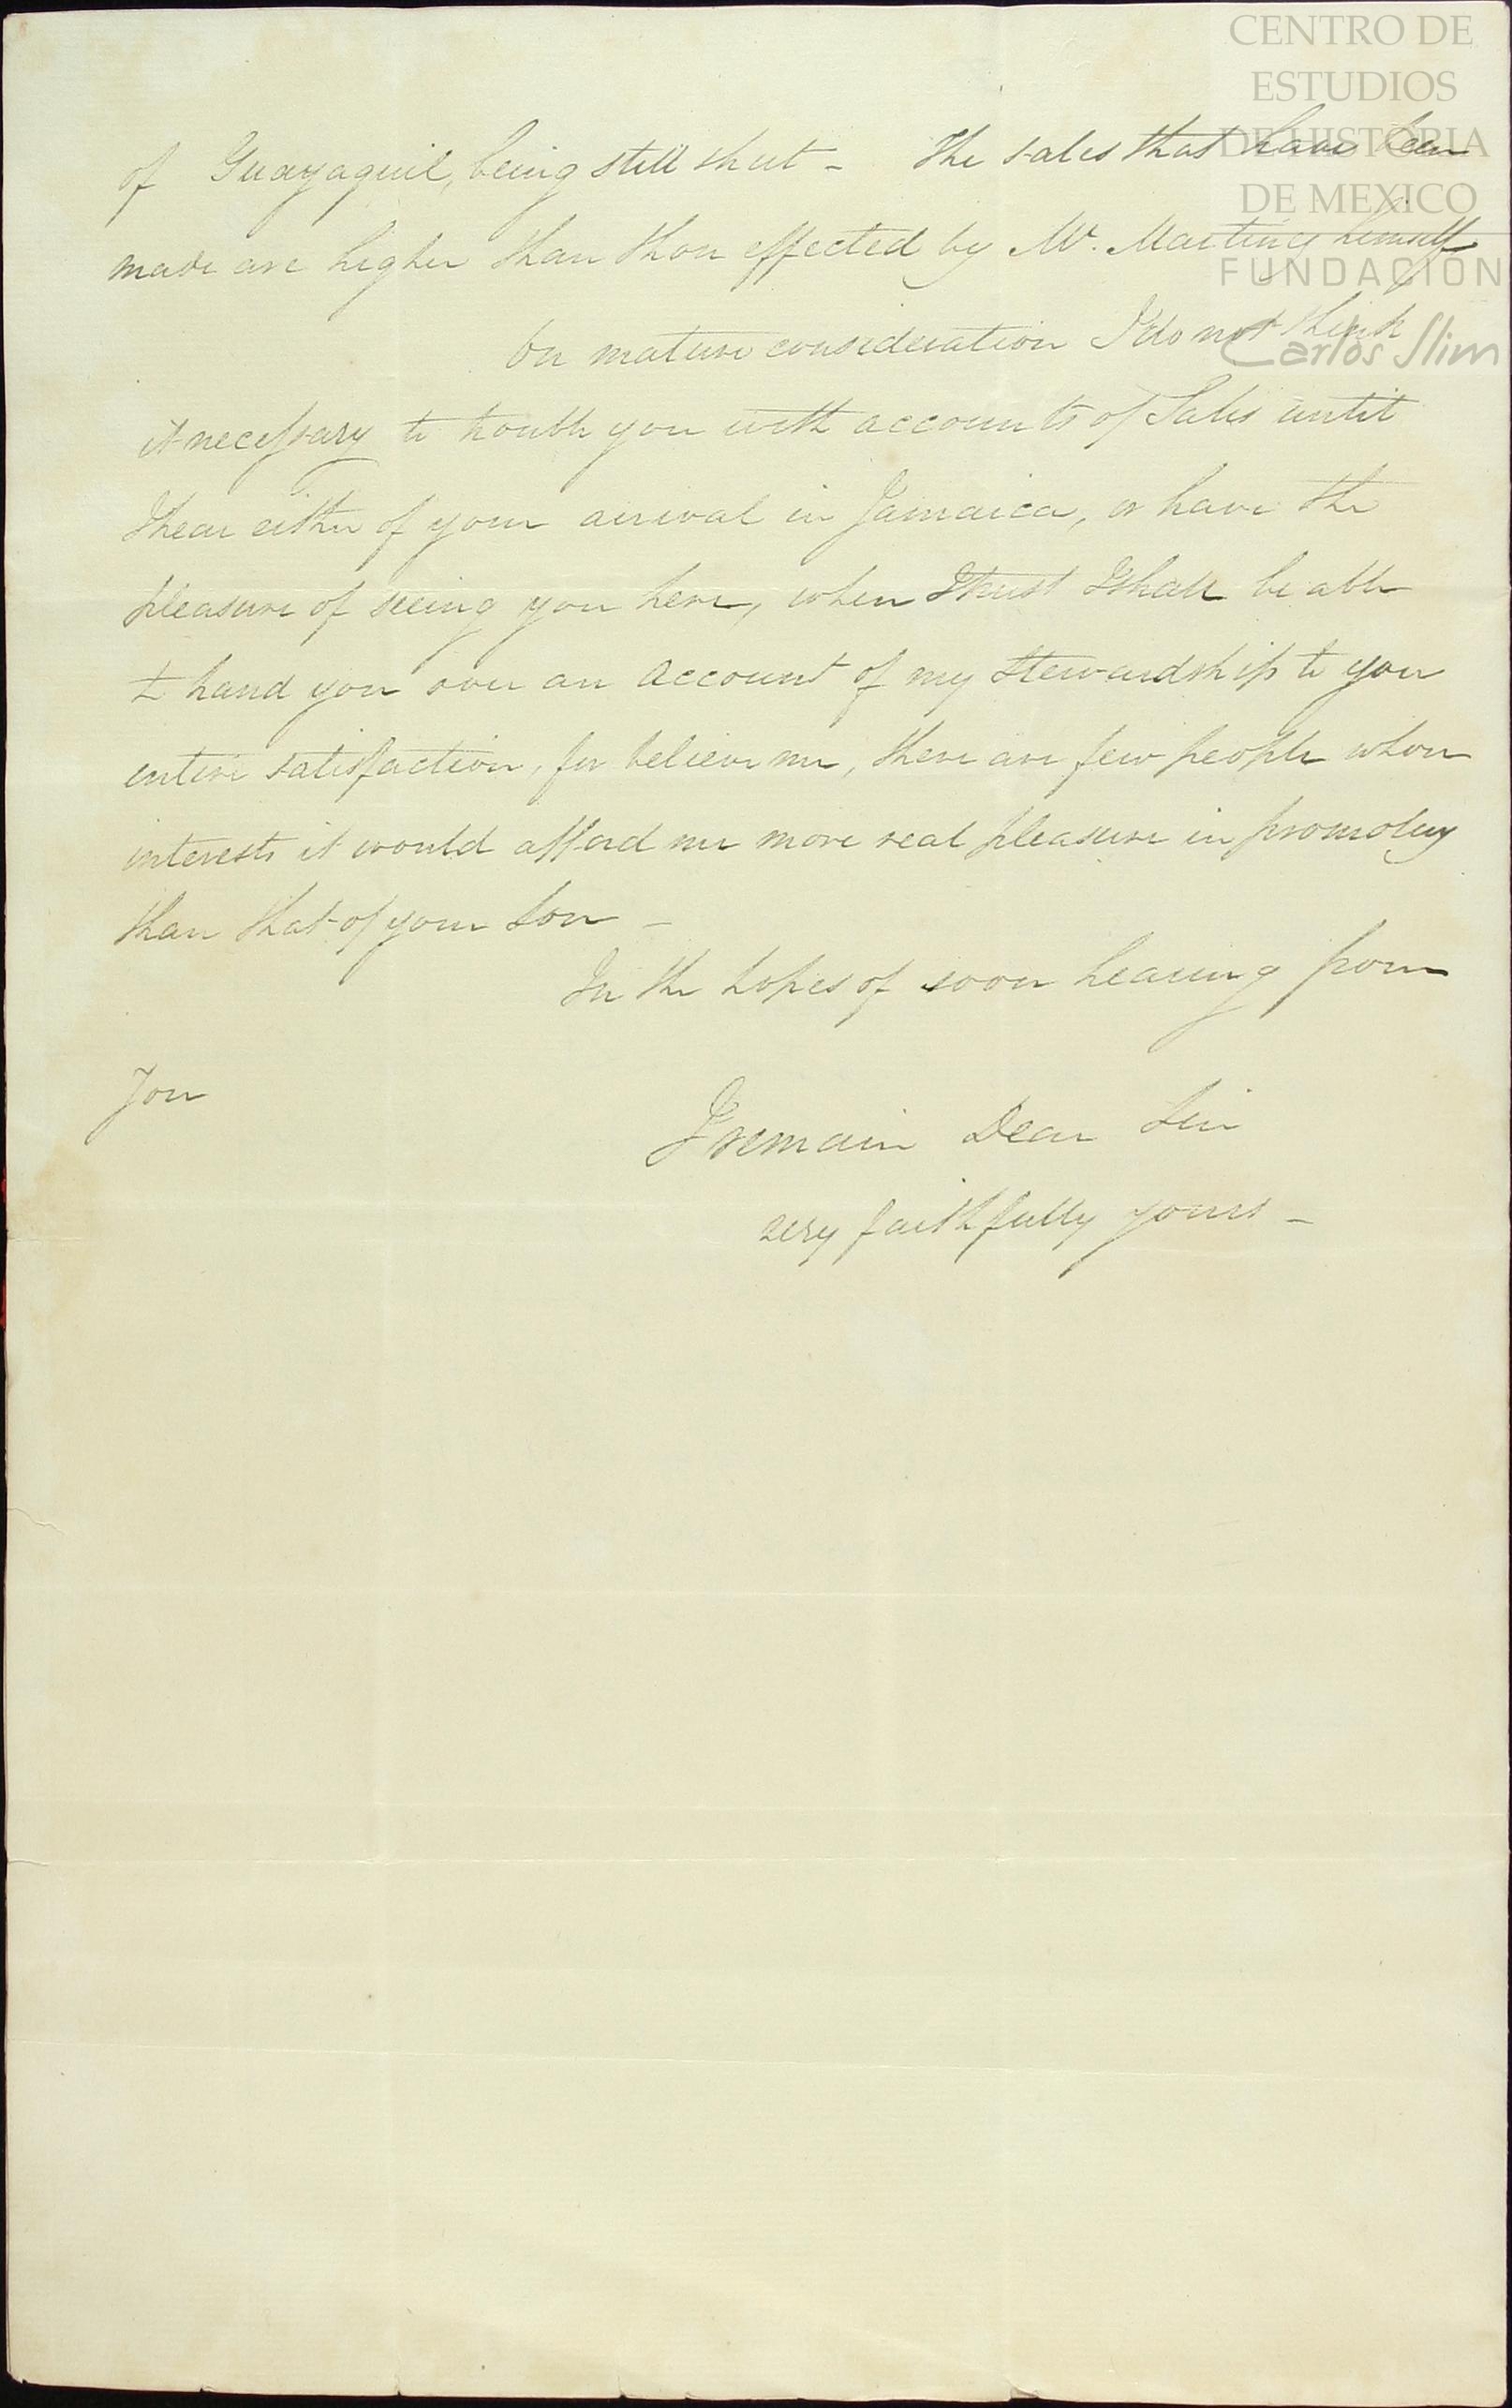 CENTRO DE
ESTUDIOS
DE HISTORIA
DE MEXICO
FUNDACIÓN
Carlos Slim
of Guayaquil, being still shut - The sales that have been
made are higher than those effected by Mr. Martinez himself
On mature consideration I do not think
it necessary to trouble you with accounts of Sales until
I hear either of your arrival in Jamaica, or have the
pleasure of seeing you here, when I trust I shall be able
to hand you over an account of my Stewardship to your
entire satisfaction, for believe me, there are few people whose
interests it would afford me more real pleasure in promoting
than that of your Son -
In the hopes of soon hearing from
You
I remain Dear Sir
very faithfully yours -